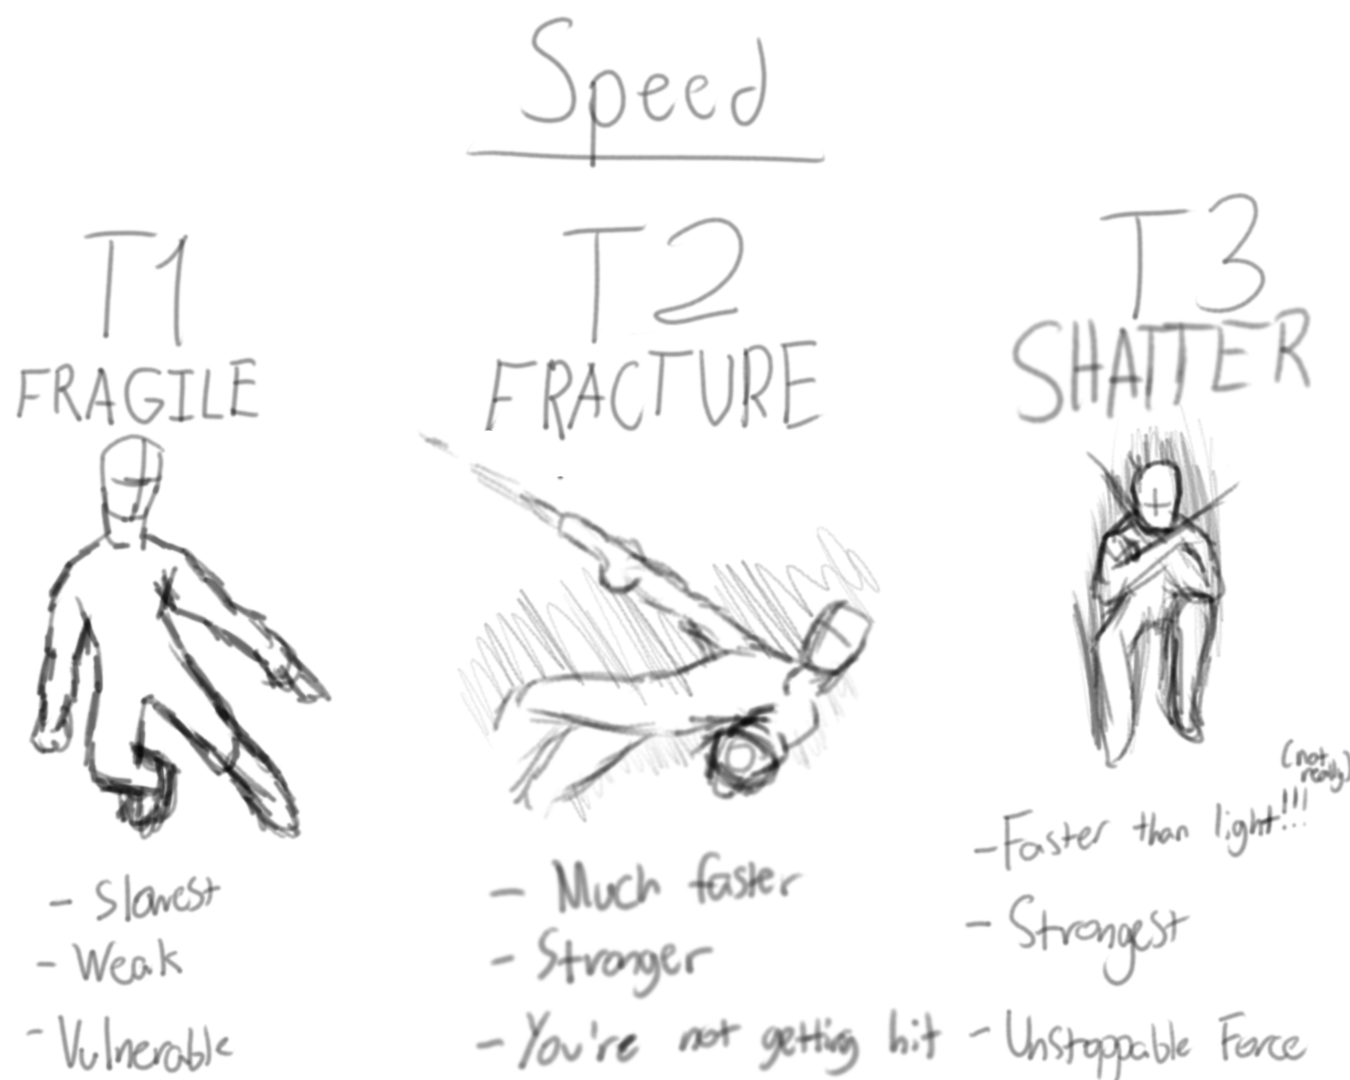 Speed
T1
FRAGILE
- Slowest
- Weak
- Vulnerable
T2
FRACTURE
- Much faster
- Stronger
- You're not getting hit
T3
SHATTER
- Faster than light!!! (not really)
- Strongest
- Unstoppable Force